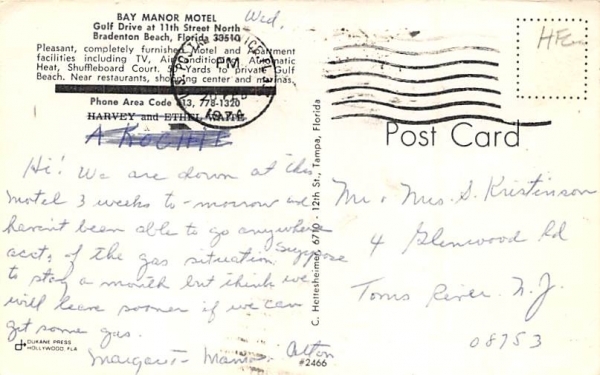 BAY MANOR MOTEL
Gulf Drive at 11th Street North
Bradenton Beach, Florida 33510
Pleasant, completely furnished Motel and Apartment
facilities including TV, Air Conditioning, Automatic
Heat, Shuffleboard Court. 50 Yards to private Gulf
Beach. Near restaurants, shopping center and marinas.
Phone Area Code 813, 778-1320
HARVEY and ETHEL WAITE
Wed.
PM
1974
Hi! We are down at this
motel 3 weeks to-morrow and
haven't been able to go anywhere
acct. of the gas situation. Suppose
to stay a month but think we
will leave sooner if we can
get some gas.
Margaret - Alton
DUKANE PRESS
HOLLYWOOD, FLA
C. Hettesheimer, 6710 - 12th St., Tampa, Florida
#2466
Post Card
Mr & Mrs. S. Kristinson
4 Glenwood Rd
Toms River N.J.
08753